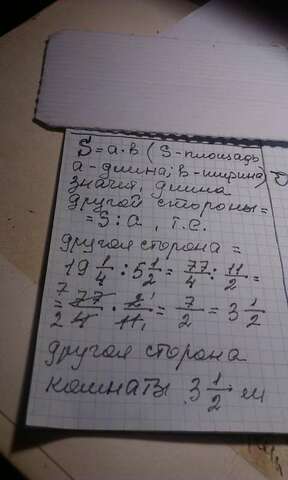 S = a·в (S-площадь
а-длина; в-ширина)
значит, длина
другой стороны =
= S : a, т.е.
другая сторона =
19 1/4 : 5 1/2 = 77/4 : 11/2 =
= 77/4 · 2/11 = 7/2 = 3 1/2
другая сторона
комнаты 3 1/2 м